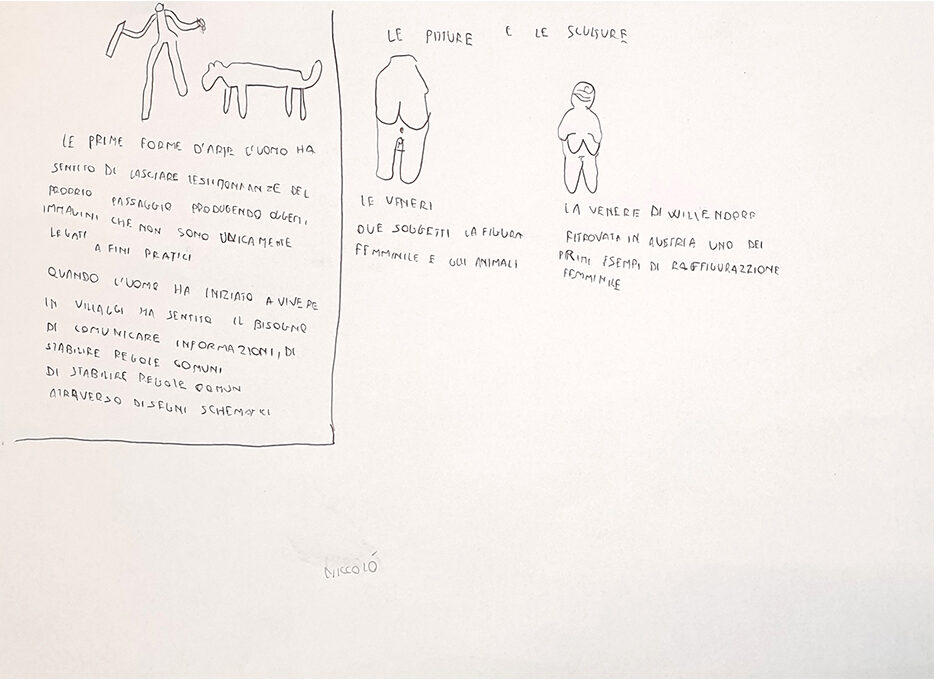 LE PRIME FORME D'ARTE L'UOMO HA
SENTITO DI LASCIARE TESTIMONIANZE DEL
PROPRIO PASSAGGIO PRODUCENDO OGGETTI,
IMMAGINI CHE NON SONO UNICAMENTE
LEGATI
A FINI PRATICI
QUANDO L'UOMO HA INIZIATO A VIVERE
IN VILLAGGI HA SENTITO IL BISOGNO
DI COMUNICARE INFORMAZIONI, DI
STABILIRE REGOLE COMUNI
DI STABILIRE REGOLE COMUN
ATRAVERSO DISEGNI SCHEMATICI
LE PITTURE E LE SCULSURE
LE VENERI
DUE SOGGETTI LA FIGURA
FEMMINILE E GLI ANIMALI
LA VENERE DI WILLENDORF
RITROVATA IN AUSTRIA UNO DEI
PRIMI ESEMPI DI RAFFIGURAZZIONE
FEMMINILE
NICCOLÓ